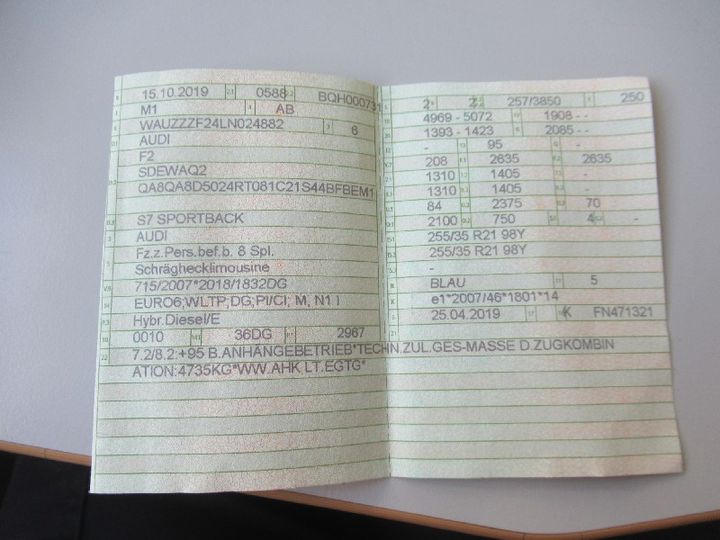 15.10.2019 0588 BQH000731
M1 AB
WAUZZZF24LN024882 6
AUDI
F2
SDEWAQ2
QA8QA8D5024RT081C21S44BFBEM1
S7 SPORTBACK
AUDI
Fz.z.Pers.bef.b. 8 Spl.
Schräghecklimousine
715/2007*2018/1832DG
EURO6;WLTP;DG;PI/CI; M, N1 I
Hybr.Diesel/E
0010 36DG 2967
2 2 257/3850 250
4969 - 5072 1908 - -
1393 - 1423 2085 - -
- 95 -
208 2635 2635
1310 1405 -
1310 1405 -
84 2375 70
2100 750 4 -
255/35 R21 98Y
255/35 R21 98Y
-
BLAU 5
e1*2007/46*1801*14
25.04.2019 K FN471321
7.2/8.2:+95 B.ANHÄNGEBETRIEB*TECHN.ZUL.GES-MASSE D.ZUGKOMBIN
ATION:4735KG*WW.AHK LT.EGTG*